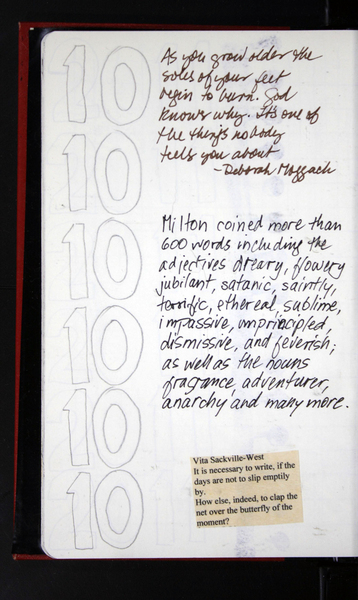 10
10
10
10
10
10
As you grow older the
soles of your feet
begin to burn. God
knows why. It's one of
the things nobody
tells you about
- Deborah Moggach
Milton coined more than
600 words including the
adjectives dreary, flowery
jubilant, satanic, saintly,
terrific, ethereal, sublime,
impassive, unprincipled,
dismissive, and feverish;
as well as the nouns
fragrance, adventurer,
anarchy, and many more.
Vita Sackville-West
It is necessary to write, if the
days are not to slip emptily
by.
How else, indeed, to clap the
net over the butterfly of the
moment?